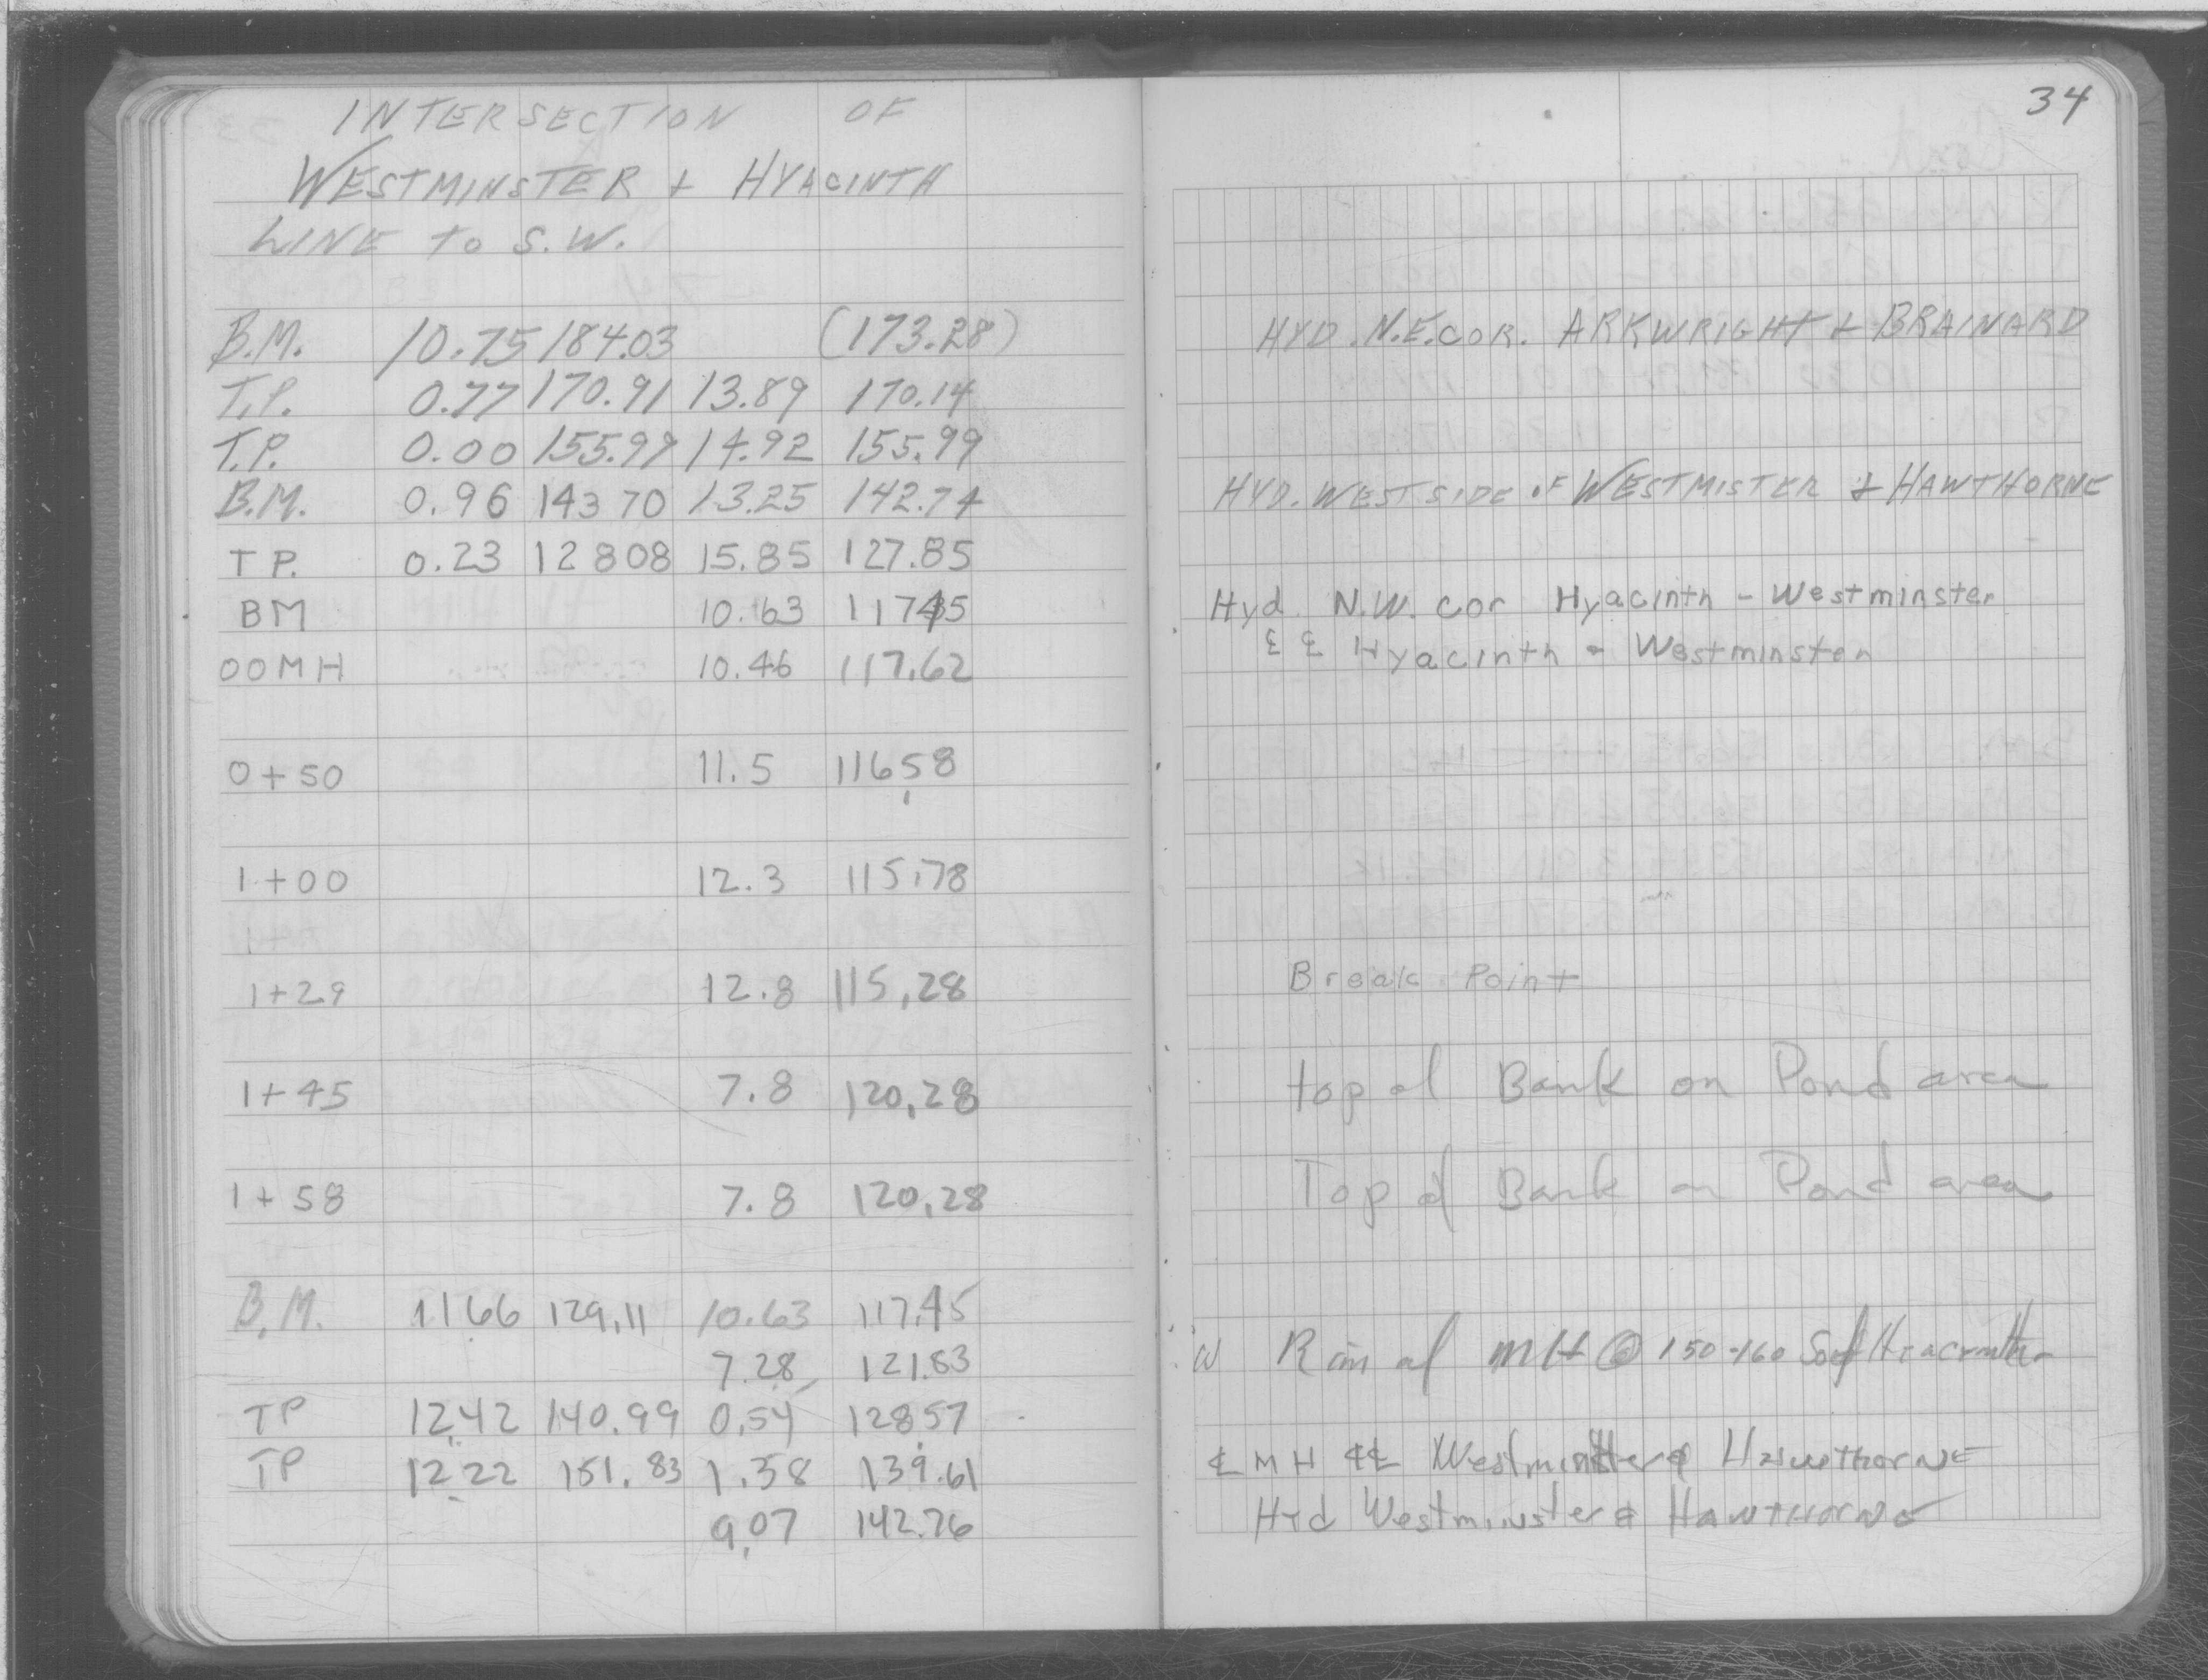 34
INTERSECTION OF
WESTMINSTER + HYACINTH
LINE TO S.W.
B.M. 10.75 184.03 (173.28) HYD. N.E. COR. ARKWRIGHT + BRAINARD
T.P. 0.77 170.91 13.89 170.14
T.P. 0.00 155.99 14.92 155.99
B.M. 0.96 143 70 13.25 142.74 HYD. WEST SIDE OF WESTMISTER + HAWTHORNE
T P. 0.23 128 08 15.85 127.85
BM 10.63 11745 Hyd N.W. cor Hyacinth - Westminster
00 MH 10.46 117.62 ℄ ℄ Hyacinth - Westminster
0+50 11.5 116.58
1+00 12.3 115.78
1+
1+29 12.8 115.28 Break Point
1+45 7.8 120.28 top of Bank on Pond area
1+58 7.8 120.28 Top of Bank on Pond area
B.M. 11.66 129.11 10.63 117.45
7.28 121.83 Rim of MH @ 150-160 S of
TP 12.42 140.99 0.54 128.57
TP 12.22 151.83 1.38 139.61 ℄ MH ℄℄ Westminster & Hawthorne
9.07 142.76 Hyd Westminster & Hawthorne